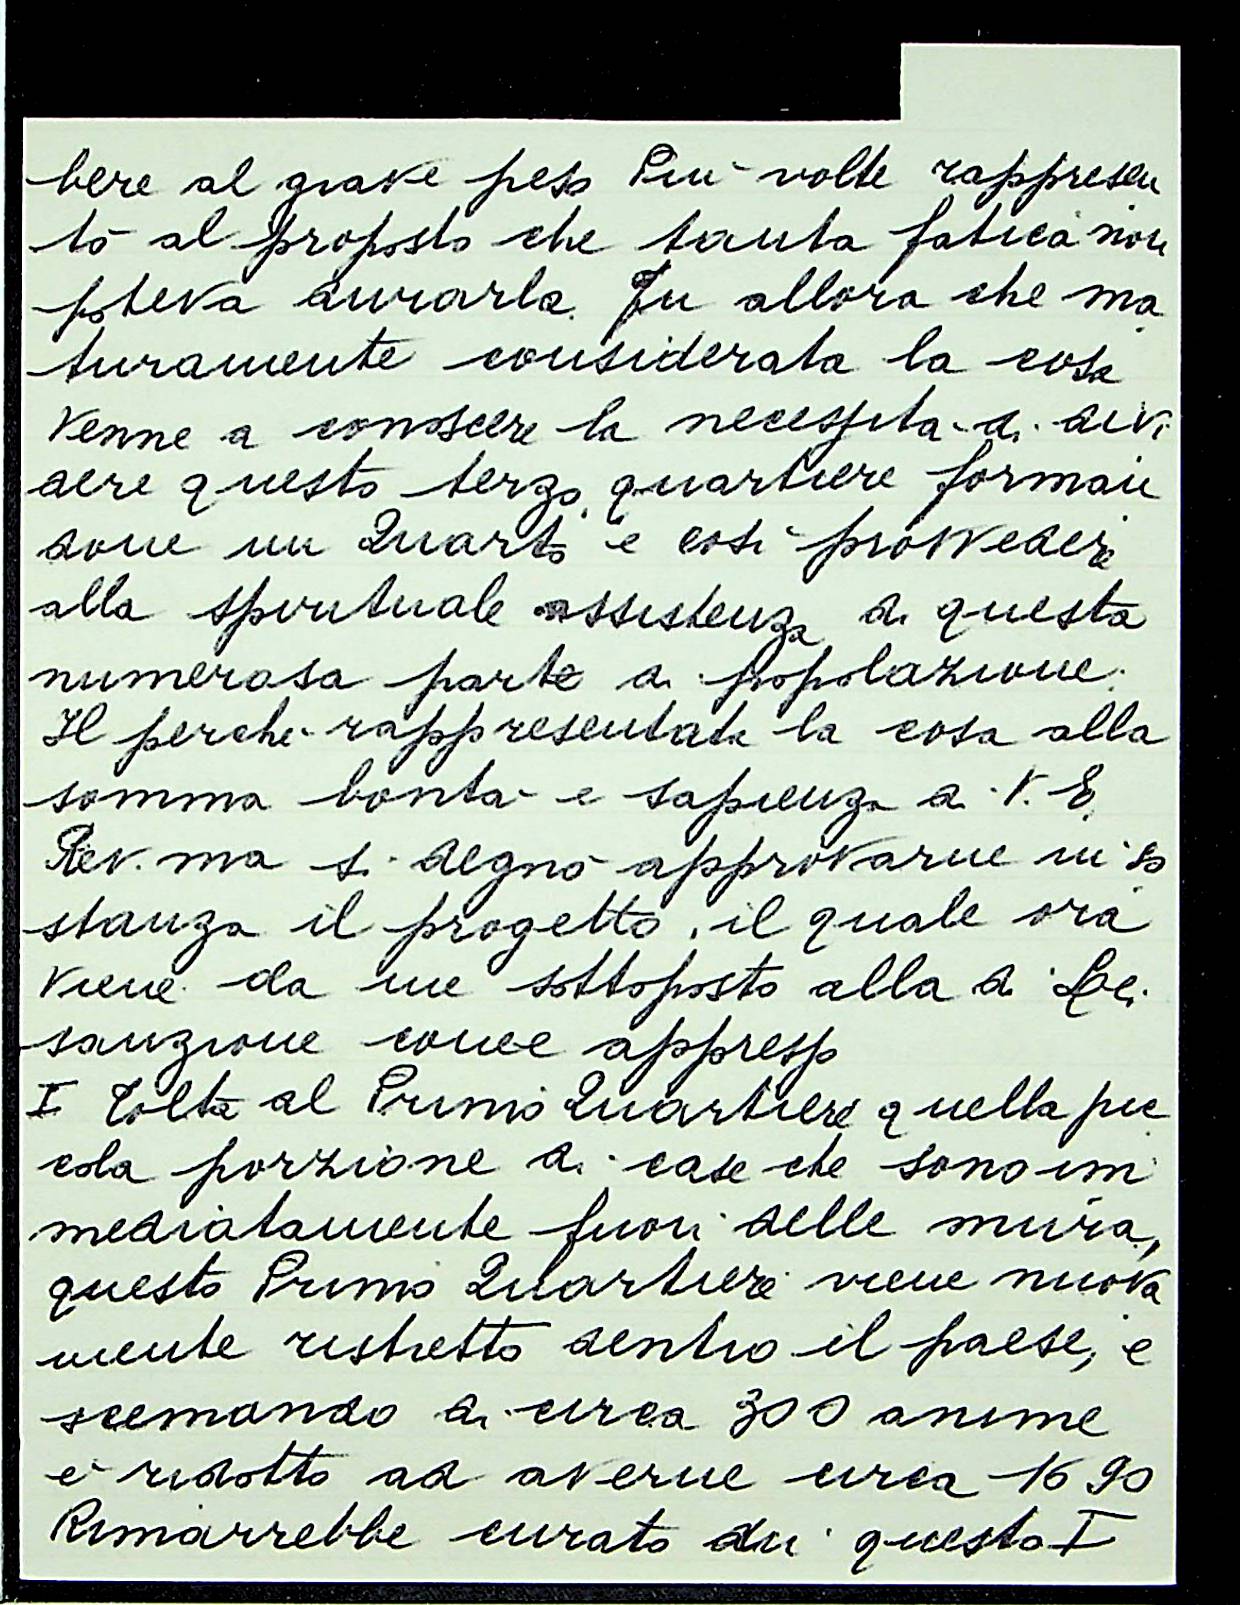 bere al grave peso Più volte rappresen
tò al proposto che tanta fatica non
poteva durarla. Fu allora che ma
turamente considerata la cosa
venne a conoscere la necessità di divi
dere questo terzo quartiere forman
done un Quarto e così provvedere
alla spirituale assistenza di questa
numerosa parte di popolazione.
Il perché rappresentata la cosa alla
somma bontà e sapienza di V. E.
Rev.ma si degnò approvarne in so
stanza il progetto, il quale ora
viene da me sottoposto alla di Lei
sanzione come appresso
I Tolta al Primo Quartiere quella pic
cola porzione di case che sono im
mediatamente fuori delle mura,
questo Primo Quartiere viene nuova
mente ristretto dentro il paese, e
scemando di circa 300 anime
è ridotto ad averne circa 1690
Rimarrebbe curato di questo I